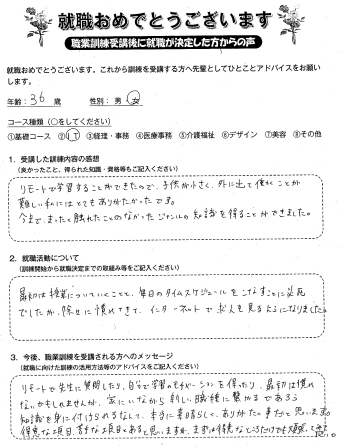 就職おめでとうございます
職業訓練受講後に就職が決定した方からの声
就職おめでとうございます。これから訓練を受講する方へ先輩としてひとことアドバイスをお願い
します。
年齢：36 歳 性別：男 女
コース種類（○をしてください）
①基礎コース ②IT ③経理・事務 ④医療事務 ⑤介護福祉 ⑥デザイン ⑦美容 ⑧その他
1．受講した訓練内容の感想
（良かったこと、得られた知識・資格等もご記入ください）
リモートで学習することができたので、子供が小さく、外に出て働くことが
難しい私にはとてもありがたかったです。
今まで、まったく触れたことのなかったジャンルの知識を得ることができました。
2．就職活動について
（訓練開始から就職決定までの取組み等をご記入ください）
最初は授業についていくことと、毎日のタイムスケジュールをこなすことに必死
でしたが、除々に慣れてきて、インターネットで求人を見るようになりました。
3．今後、職業訓練を受講される方へのメッセージ
（就職に向けた訓練の活用方法等のアドバイスをご記入ください）
リモートで先生に質問したり、自分で学習のモチベーションを保ったり、最初は慣れ
ないかもしれませんが、家にいながら新しい職種に繋がるであろう
知識を身に付けられるなんて、本当に素晴らしく、ありがたい事だと思います。
得意な項目、苦手な項目とあると思いますが、まずは得意なところだけでも